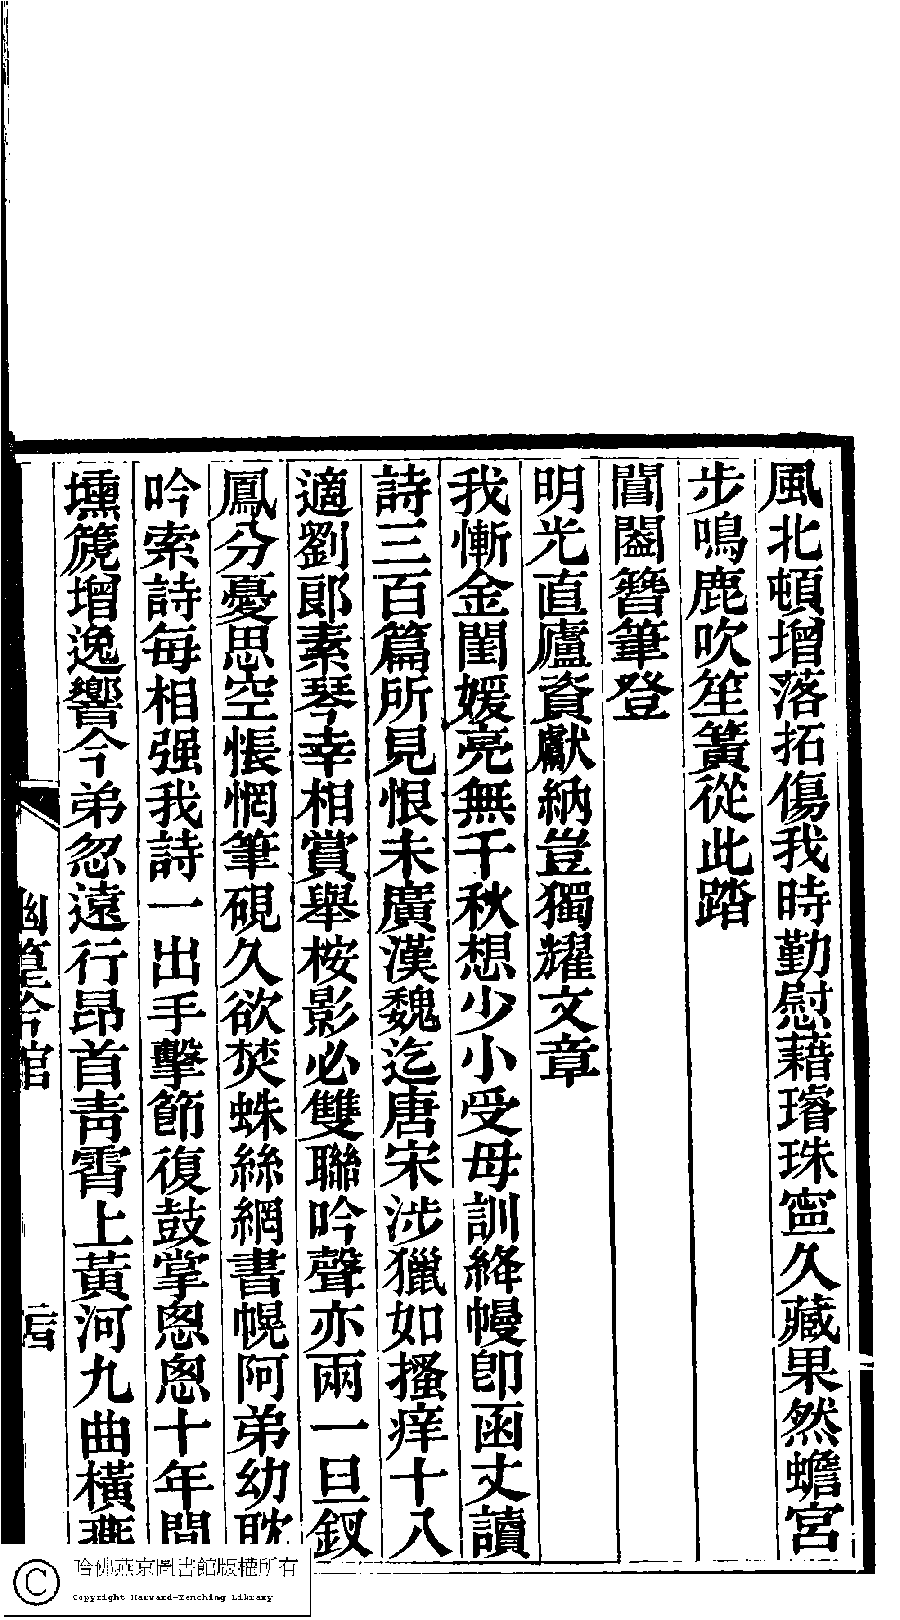 風北頓增落拓傷我時勤慰藉璿珠寍久藏果然蟾宮
步鳴鹿吹笙簧從此踏
閶闔簪筆登
明光直廬資獻納豈獨耀文章
我慚金閨媛亮無千秋想少小受母訓絳幔卽函丈讀
詩三百篇所見恨未廣漢魏迄唐宋涉獵如搔痒十八
適劉郎素琴幸相賞舉桉影必雙聯吟聲亦兩一旦釵
鳳分憂思空悵惘筆硯久欲焚蛛絲網書幌阿弟幼耽
吟索詩每相强我詩一出手擊節復鼓掌悤悤十年間
壎篪增逸響今弟忽遠行昂首靑霄上黃河九曲橫燕
哈佛燕京圖書館版權所有
Copyright Harvard-Yenching Library